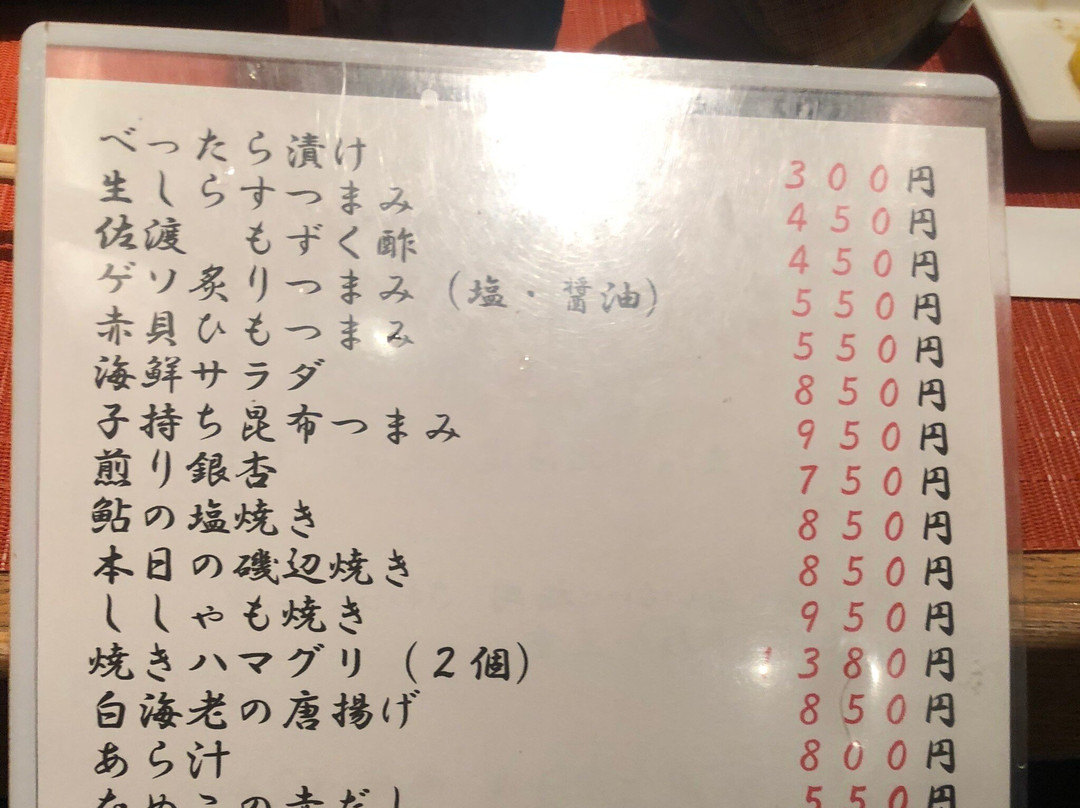 べったら漬け 300円
生しらすつまみ 450円
佐渡 もずく酢 450円
ゲソ炙りつまみ (塩・醤油) 550円
赤貝ひもつまみ 550円
海鮮サラダ 850円
子持ち昆布つまみ 950円
煎り銀杏 750円
鮎の塩焼き 850円
本日の磯辺焼き 850円
ししゃも焼き 950円
焼きハマグリ (2個) 1380円
白海老の唐揚げ 850円
あら汁 800円
なめこの赤だし 550円